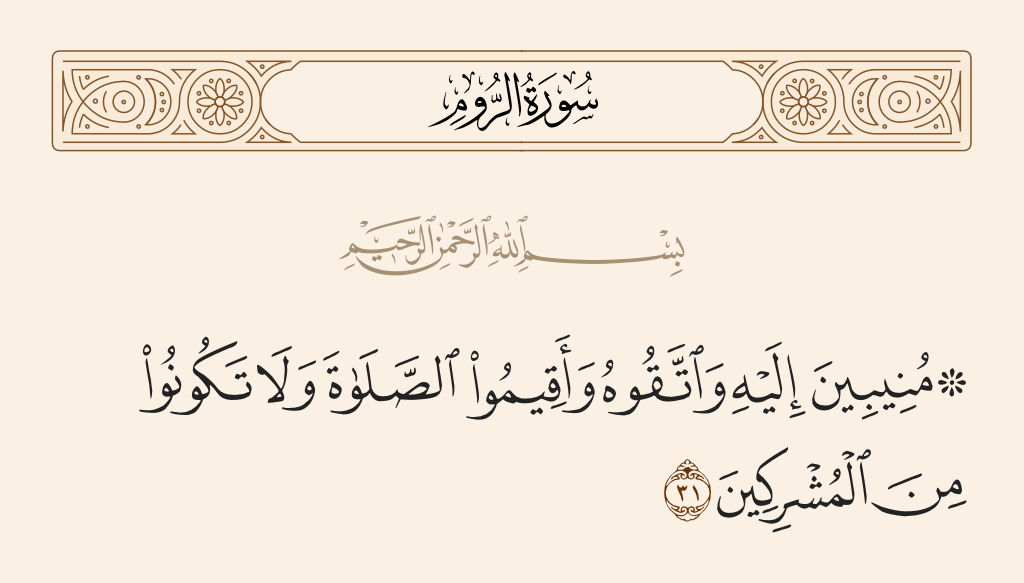 سُورَةُ الرُّومِ
بِسْمِ ٱللَّهِ ٱلرَّحْمَٰنِ ٱلرَّحِيمِ
۞ مُنِيبِينَ إِلَيْهِ وَٱتَّقُوهُ وَأَقِيمُوا۟ ٱلصَّلَوٰةَ وَلَا تَكُونُوا۟
مِنَ ٱلْمُشْرِكِينَ ٣١